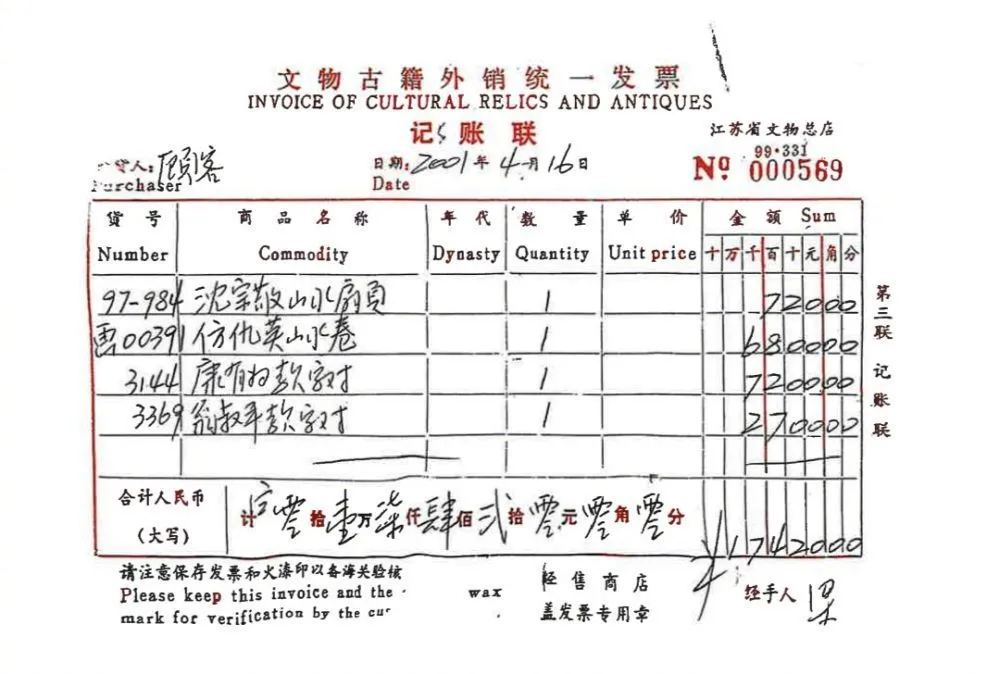 文物古籍外销统一发票
INVOICE OF CULTURAL RELICS AND ANTIQUES
记账联
江苏省文物总店
99·331
货人: 顾客
Purchaser
日期: 2001年4月16日
Date
Nº 000569
货号 商品名称 年代 数量 单价 金额 Sum
Number Commodity Dynasty Quantity Unit price 十万千百十元角分
97-984 沈宗敬山水扇页 1 72000
画00391 仿仇英山水卷 1 680000
3144 康有为款字对 1 720000
3369 翁叔平款字对 1 270000
合计人民币
(大写)
计 零拾壹万柒仟肆佰贰拾零元零角零分 ¥1742000
请注意保存发票和火漆印以备海关验核
Please keep this invoice and the wax
mark for verification by the cus
经售商店
盖发票专用章
经手人
第三联 记账联